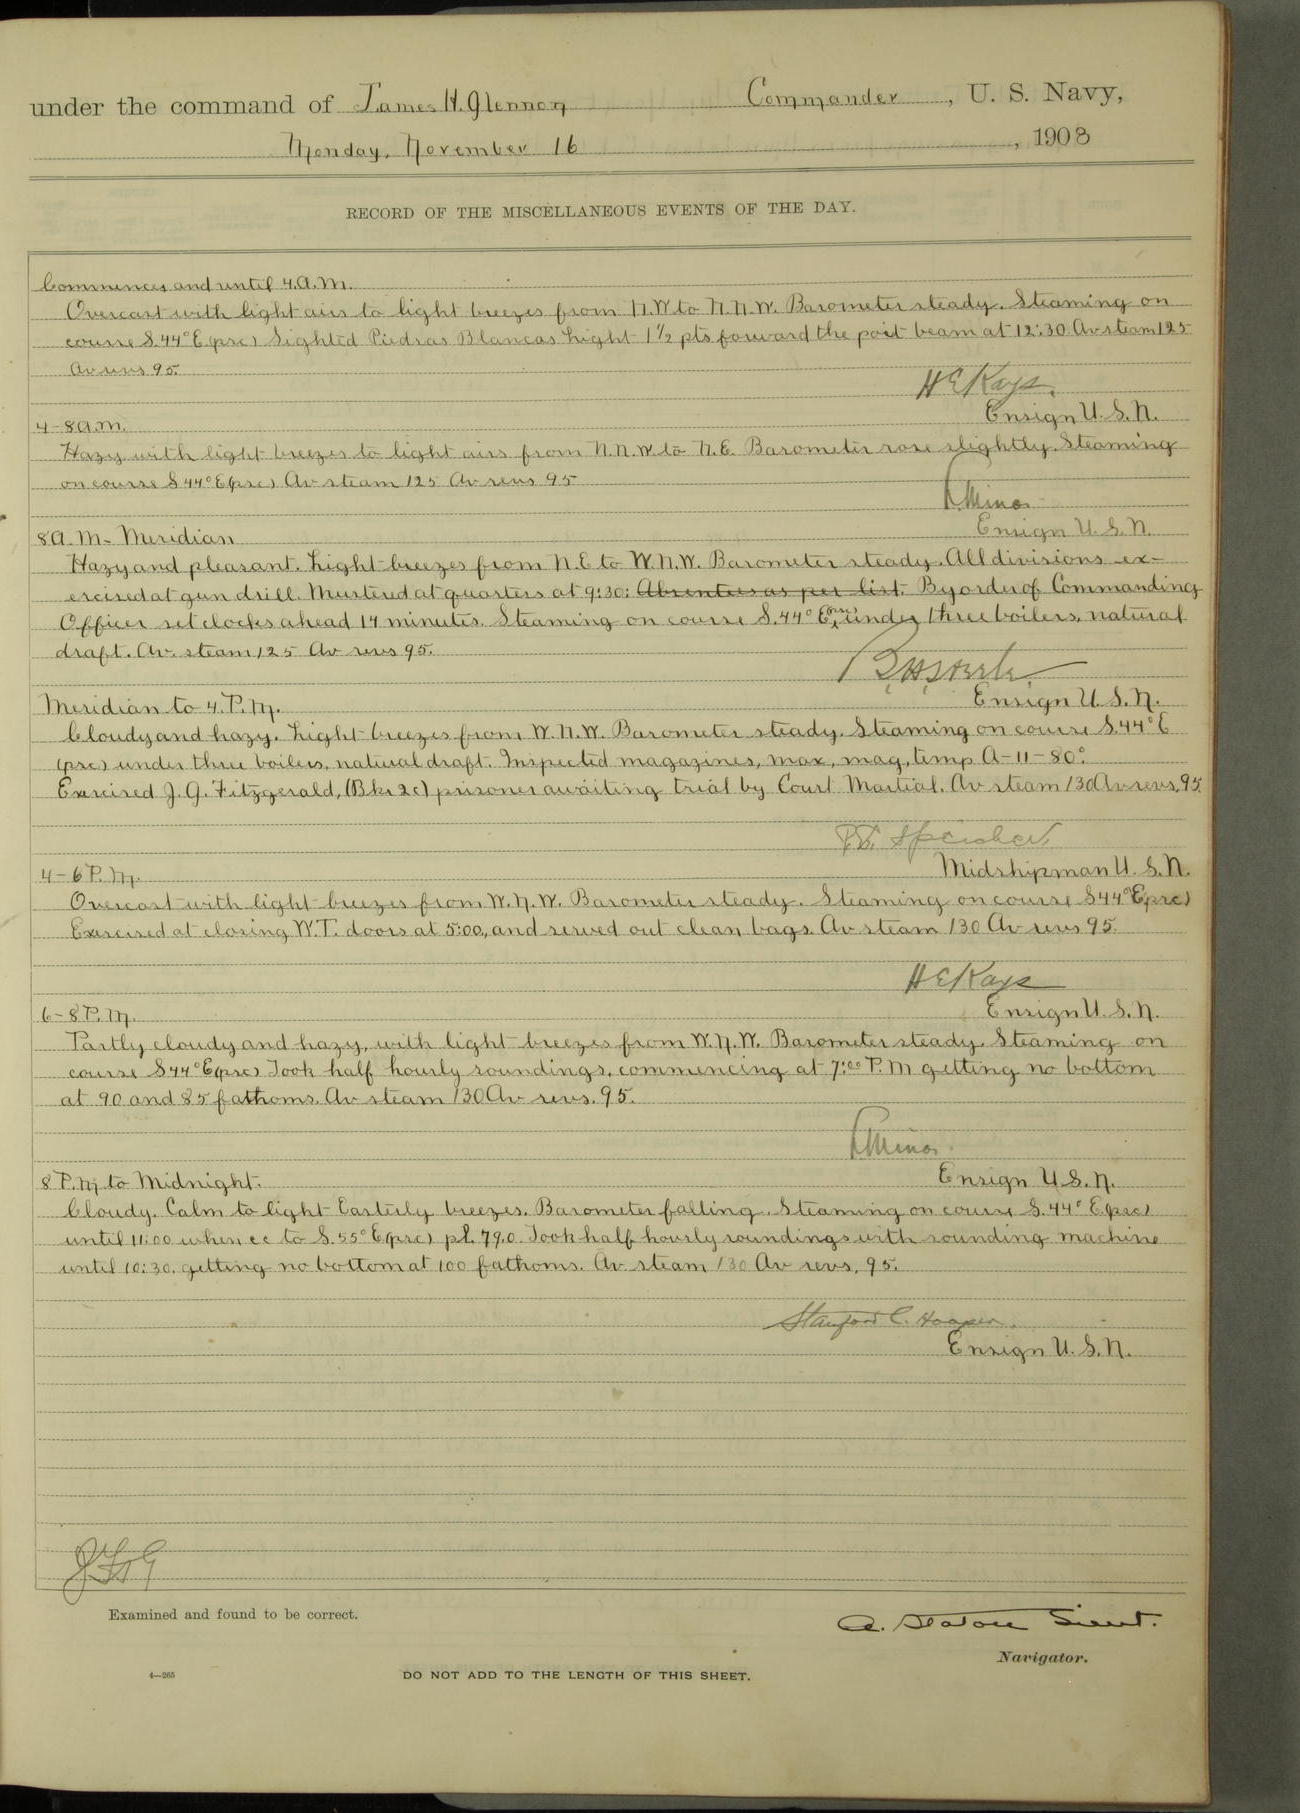 under the command of James H. Glennon Commander, U. S. Navy,
Monday, November 16, 1908
RECORD OF THE MISCELLANEOUS EVENTS OF THE DAY.
Commences and until 4.A.M.
Overcast with light airs to light breezes from N.W to N.N.W. Barometer steady. Steaming on
course S.44°E (psc) Sighted Piedras Blancas Light 1½ pts forward the port beam at 12:30. Av steam 125
Av revs 95.
H E Kays.
Ensign U.S.N.
4-8 a.m.
Hazy with light breezes to light airs from N.N.W. to N.E. Barometer rose slightly. Steaming
on course S 44°E (psc) Av steam 125 Av revs 95
Minor
Ensign U.S.N.
8 A.M- Meridian
Hazy and pleasant. Light breezes from N.E to W.N.W. Barometer steady. All divisions ex-
ercised at gun drill. Mustered at quarters at 9:30: Absentees as per list. By order of Commanding
Officer set clocks ahead 14 minutes. Steaming on course S.44° E (psc), under three boilers, natural
draft. Av. steam 125 Av revs 95.
Ensign U.S.N.
Meridian to 4.P.M.
Cloudy and hazy. Light breezes from W.N.W. Barometer steady. Steaming on course S.44°E
(psc) under three boilers, natural draft. Inspected magazines, max, mag, temp A-11-80°.
Exercised J. G. Fitzgerald, (Bkr 2c) prisoner awaiting trial by Court Martial. Av steam 130 Av revs, 95.
Midshipman U.S.N.
4-6 P.M.
Overcast with light breezes from W.N.W. Barometer steady. Steaming on course S44°E(psc)
Exercised at closing W.T. doors at 5:00, and served out clean bags. Av steam 130 Av revs 95.
H E Kays
Ensign U.S.N.
6-8 P.M.
Partly cloudy and hazy, with light breezes from W.N.W. Barometer steady. Steaming on
course S44°E(psc) Took half hourly soundings, commencing at 7:00 P.M getting no bottom
at 90 and 85 fathoms. Av steam 130 Av revs. 95.
Minor
Ensign U.S.N.
8 P.M to Midnight.
Cloudy. Calm to light Easterly breezes. Barometer falling. Steaming on course S.44° E(psc)
until 11:00 when cc to S.55°E(psc) pl. 79.0. Took half hourly soundings with sounding machine
until 10:30, getting no bottom at 100 fathoms. Av steam 130 Av revs, 95.
Stanford C. Hooper.
Ensign U.S.N.
Examined and found to be correct.
A. Staton Lieut.
Navigator.
4—265
DO NOT ADD TO THE LENGTH OF THIS SHEET.